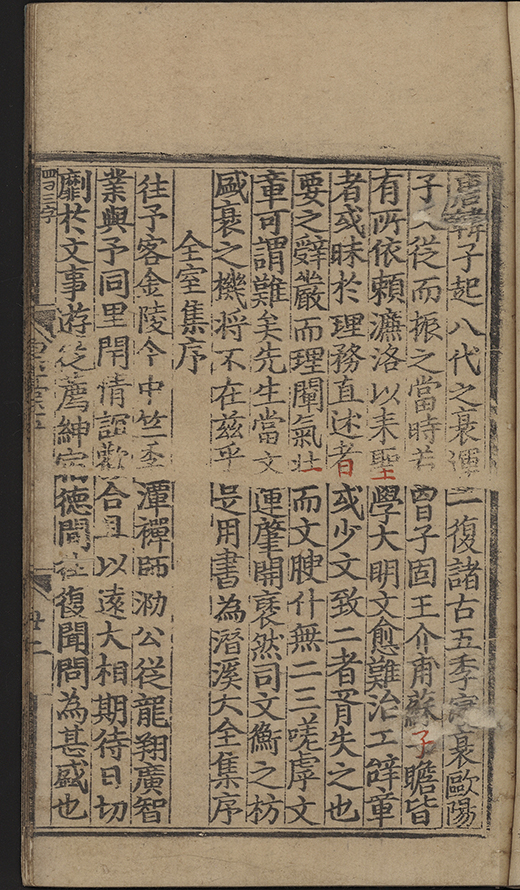 唐韓子起八代之衰運一復諸古五季寖衰歐陽
子又從而振之當時若曾子固王介甫蘇子瞻皆
有所依賴濂洛以来聖學大明文愈難治工辭章
者或昧於理務直述者或少文致二者胥失之也
要之辭嚴而理闡氣壮而文腴什無二三嗟虖文
章可謂難矣先生當文運肇開裦然司文衡之枋
盛衰之機将不在兹乎是用書為潛溪大全集序
全室集序
往予客金陵今中竺季潭禪師泐公從龍翔廣智
業與予同里閈情誼歡合且以遠大相期待日切
劘於文事游從薦紳宿德間往復聞問為甚盛也
四百三字